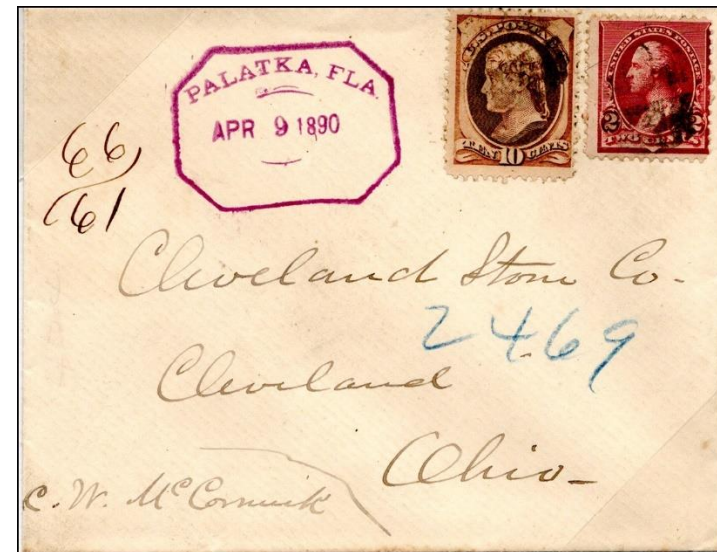 PALATKA, FLA.
APR 9 1890
U.S. POSTAGE
TEN 10 CENTS
UNITED STATES POSTAGE
2 2
66
61
Cleveland Stone Co.
2469
Cleveland
Ohio
C. W. McCormick